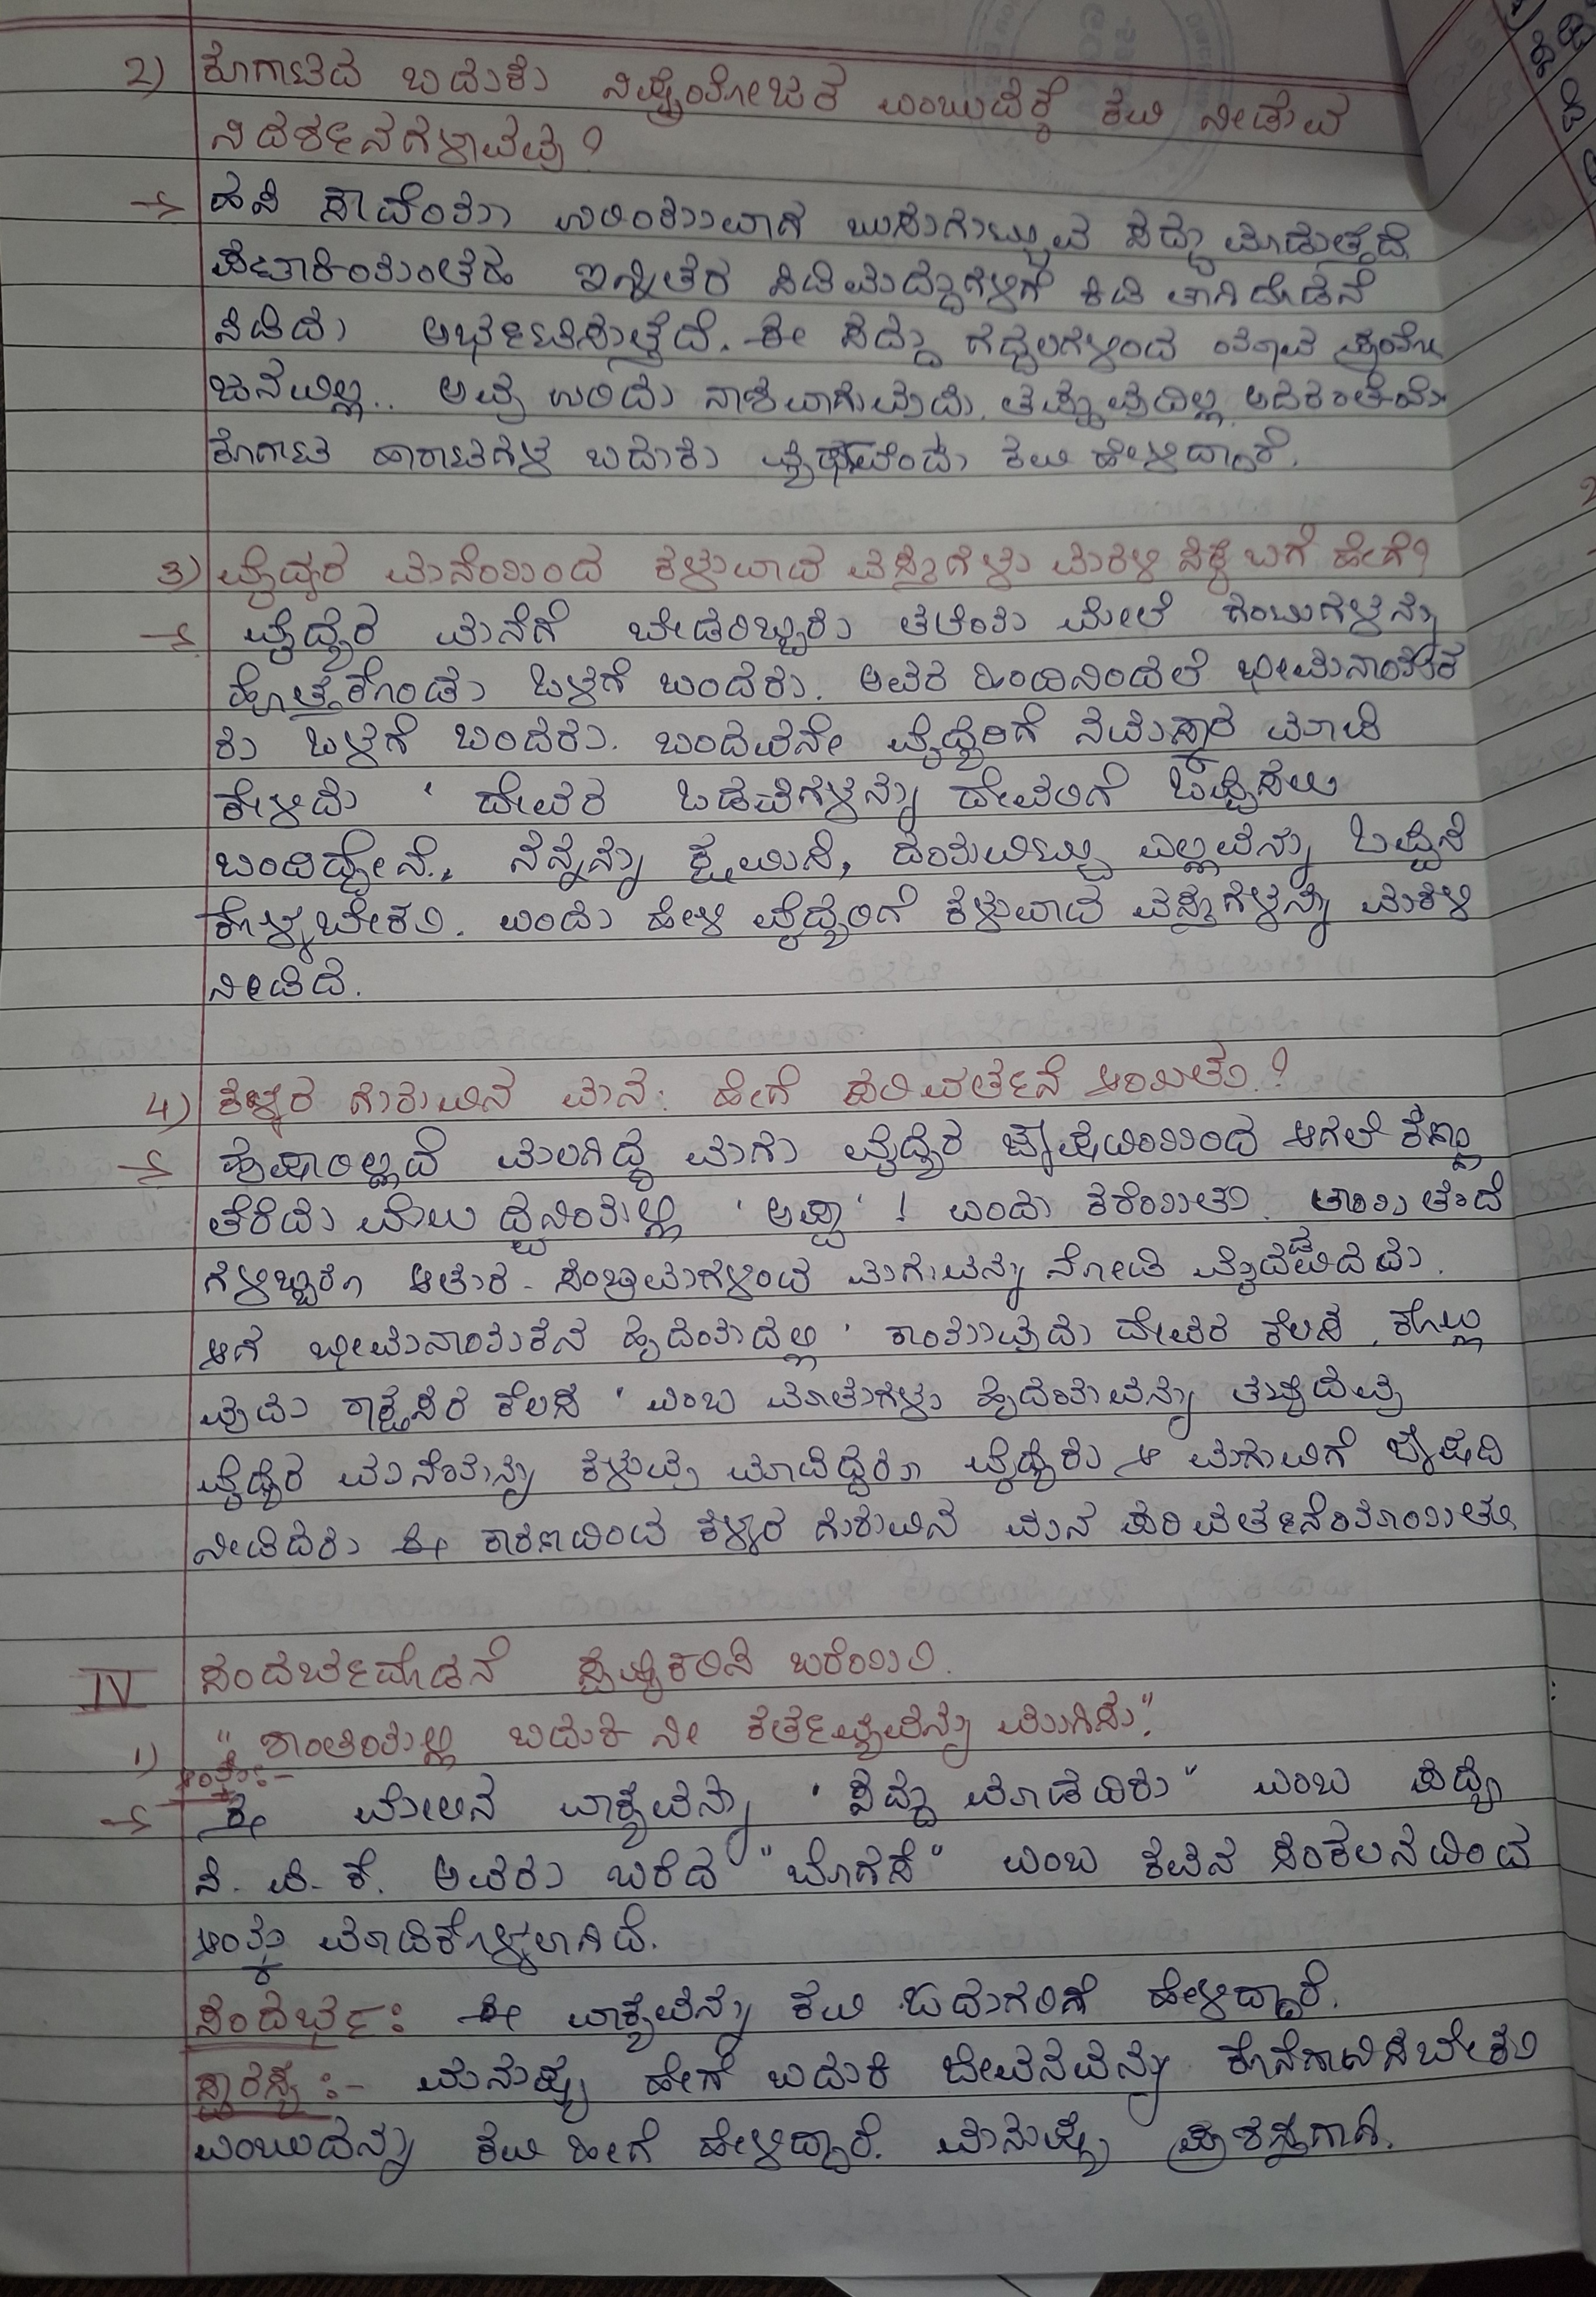 2) ಕೂಗಾಟದ ಬದುಕು ನಿಷ್ಪ್ರಯೋಜಕ ಎಂಬುದಕ್ಕೆ ಕವಿ ನೀಡುವ
ನಿದರ್ಶನಗಳಾವುವು?
→ ಹಸಿ ಸೌದೆಯು ಉರಿಯುವಾಗ ಬುಸುಗುಟ್ಟುವ ಸದ್ದು ಮಾಡುತ್ತದೆ
ಪಟಾಕಿಯಂತಹ ಇನ್ನಿತರ ಸಿಡಿಮದ್ದುಗಳಿಗೆ ಕಿಡಿ ತಾಗಿದೊಡನೆ
ಸಿಡಿದು ಆರ್ಭಟಿಸುತ್ತದೆ. ಈ ಸದ್ದು ಗದ್ದಲಗಳಿಂದ ಯಾವ ಪ್ರಯೋ
ಜನವಿಲ್ಲ.. ಅವು ಉರಿದು ನಾಶವಾಗುವುದು ತಪ್ಪುವುದಿಲ್ಲ ಅದರಂತೆಯೇ
ಕೂಗಾಟ ಹಾರಾಟಗಳ ಬದುಕು ವ್ಯರ್ಥವೆಂದು ಕವಿ ಹೇಳಿದ್ದಾರೆ.
3) ವೈದ್ಯರ ಮನೆಯಿಂದ ಕಳುವಾದ ವಸ್ತುಗಳು ಮರಳಿ ಸಿಕ್ಕ ಬಗೆ ಹೇಗೆ?
→ ವೈದ್ಯರ ಮನೆಗೆ ಬೇಡರಿಬ್ಬರು ತಲೆಯ ಮೇಲೆ ಗಂಟುಗಳನ್ನು
ಹೊತ್ತುಕೊಂಡು ಒಳಗೆ ಬಂದರು. ಅವರ ಹಿಂದಿನಿಂದಲೆ ಭೀಮನಾಯಕ
ರು ಒಳಗೆ ಬಂದರು. ಬಂದವನೇ ವೈದ್ಯರಿಗೆ ನಮಸ್ಕಾರ ಮಾಡಿ
ಕೇಳಿದು ' ದೇವರ ಒಡವೆಗಳನ್ನು ದೇವರಿಗೆ ಒಪ್ಪಿಸಲು
ಬಂದಿದ್ದೇನೆ., ನನ್ನನ್ನು ಕ್ಷಮಿಸಿ, ದಯವಿಟ್ಟು ಎಲ್ಲವನ್ನು ಒಪ್ಪಿಸಿ
ಕೊಳ್ಳಬೇಕು. ಎಂದು ಹೇಳಿ ವೈದ್ಯರಿಗೆ ಕಳುವಾದ ವಸ್ತುಗಳನ್ನು ಮರಳಿ
ನೀಡಿದ.
4) ಕಳ್ಳರ ಗುರುವಿನ ಮನ: ಹೇಗೆ ಪರಿವರ್ತನೆ ಆಯಿತು.?
→ ಹುಷಾರಿಲ್ಲದೆ ಮಲಗಿದ್ದ ಮಗು ವೈದ್ಯರ ಔಷಧಿಯಿಂದ ಆಗಲೆ ಕಣ್ಣು
ತೆರೆದು ಮೆಲು ಧ್ವನಿಯಲ್ಲಿ ' ಅಪ್ಪಾ ' ! ಎಂದು ಕರೆಯಿತು. ತಾಯಿ ತಂದೆ
ಗಳಿಬ್ಬರೂ ಆತುರ - ಸಂಭ್ರಮಗಳಿಂದ ಮಗುವನ್ನು ನೋಡಿ ಮೈದಡವಿದರು.
ಆಗ ಭೀಮನಾಯಕನ ಹೃದಯದಲ್ಲಿ ' ಕಾಯುವುದು ದೇವರ ಕೆಲಸ, ಕೊಲ್ಲು
ವುದು ರಾಕ್ಷಸರ ಕೆಲಸ ' ಎಂಬ ಮಾತುಗಳು ಹೃದಯವನ್ನು ತಟ್ಟಿದವು
ವೈದ್ಯರ ಮನೆಯನ್ನು ಕಳುವು ಮಾಡಿದ್ದರೂ ವೈದ್ಯರು ಆ ಮಗುವಿಗೆ ಔಷಧಿ
ನೀಡಿದರು ಈ ಕಾರಣದಿಂದ ಕಳ್ಳರ ಗುರುವಿನ ಮನ ಪರಿವರ್ತನೆಯಾಯಿತು
IV ಸಂದರ್ಭದೊಡನೆ ಸ್ಪಷ್ಟೀಕರಿಸಿ ಬರೆಯಿರಿ.
1) " ಶಾಂತಿಯಲ್ಲಿ ಬದುಕಿ ನೀ ಕರ್ತವ್ಯವನ್ನು ಮುಗಿಸು".
ಆಯ್ಕೆ:-
→ ಈ ಮೇಲಿನ ವಾಕ್ಯವನ್ನು ' ಸದ್ದು ಮಾಡದಿರು " ಎಂಬ ಪದ್ಯ
ಸಿ. ಪಿ. ಕೆ. ಅವರು ಬರೆದ " ಬೊಗಸೆ " ಎಂಬ ಕವನ ಸಂಕಲನದಿಂದ
ಆಯ್ಕೆ ಮಾಡಿಕೊಳ್ಳಲಾಗಿದೆ.
ಸಂದರ್ಭ: ಈ ವಾಕ್ಯವನ್ನು ಕವಿ ಓದುಗರಿಗೆ ಹೇಳಿದ್ದಾರೆ.
ಸ್ವಾರಸ್ಯ :- ಮನುಷ್ಯ ಹೇಗೆ ಬದುಕಿ ಜೀವನವನ್ನು ಕೊನೆಗಾಣಿಸಬೇಕು
ಎಂಬುದನ್ನು ಕವಿ ಹೀಗೆ ಹೇಳಿದ್ದಾರೆ. ಮನುಷ್ಯ